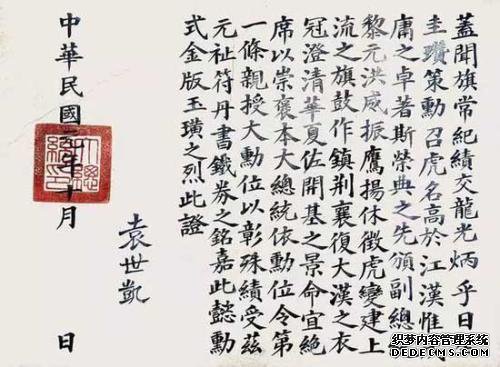 蓋聞旗常紀績交龍光炳乎日
圭瓚策勳召虎名高於江漢惟
庸之卓著斯榮典之先頒副總
黎元洪威振鷹揚休徵虎變建上
流之旗鼓作鎮荊襄復大漢之衣
冠澄清華夏佐開基之景命宜絕
席以崇褒本大總統依勳位令第
一條親授大勳位以彰殊績受茲
元祉符丹書鐵券之銘嘉此懿勳
式金版玉璜之烈此證
袁世凱
中華民國二年十月 日
大總統印
织梦内容管理系统
DEDECMS.COM